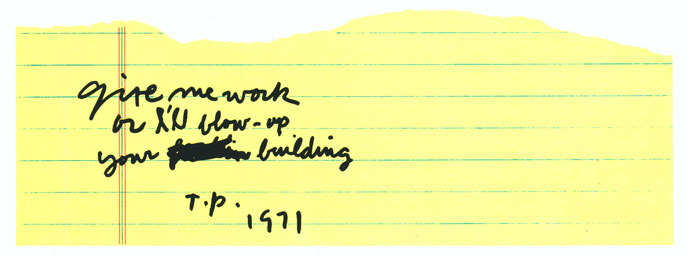 give me work
or I'll blow-up
your building
T.P.
1971